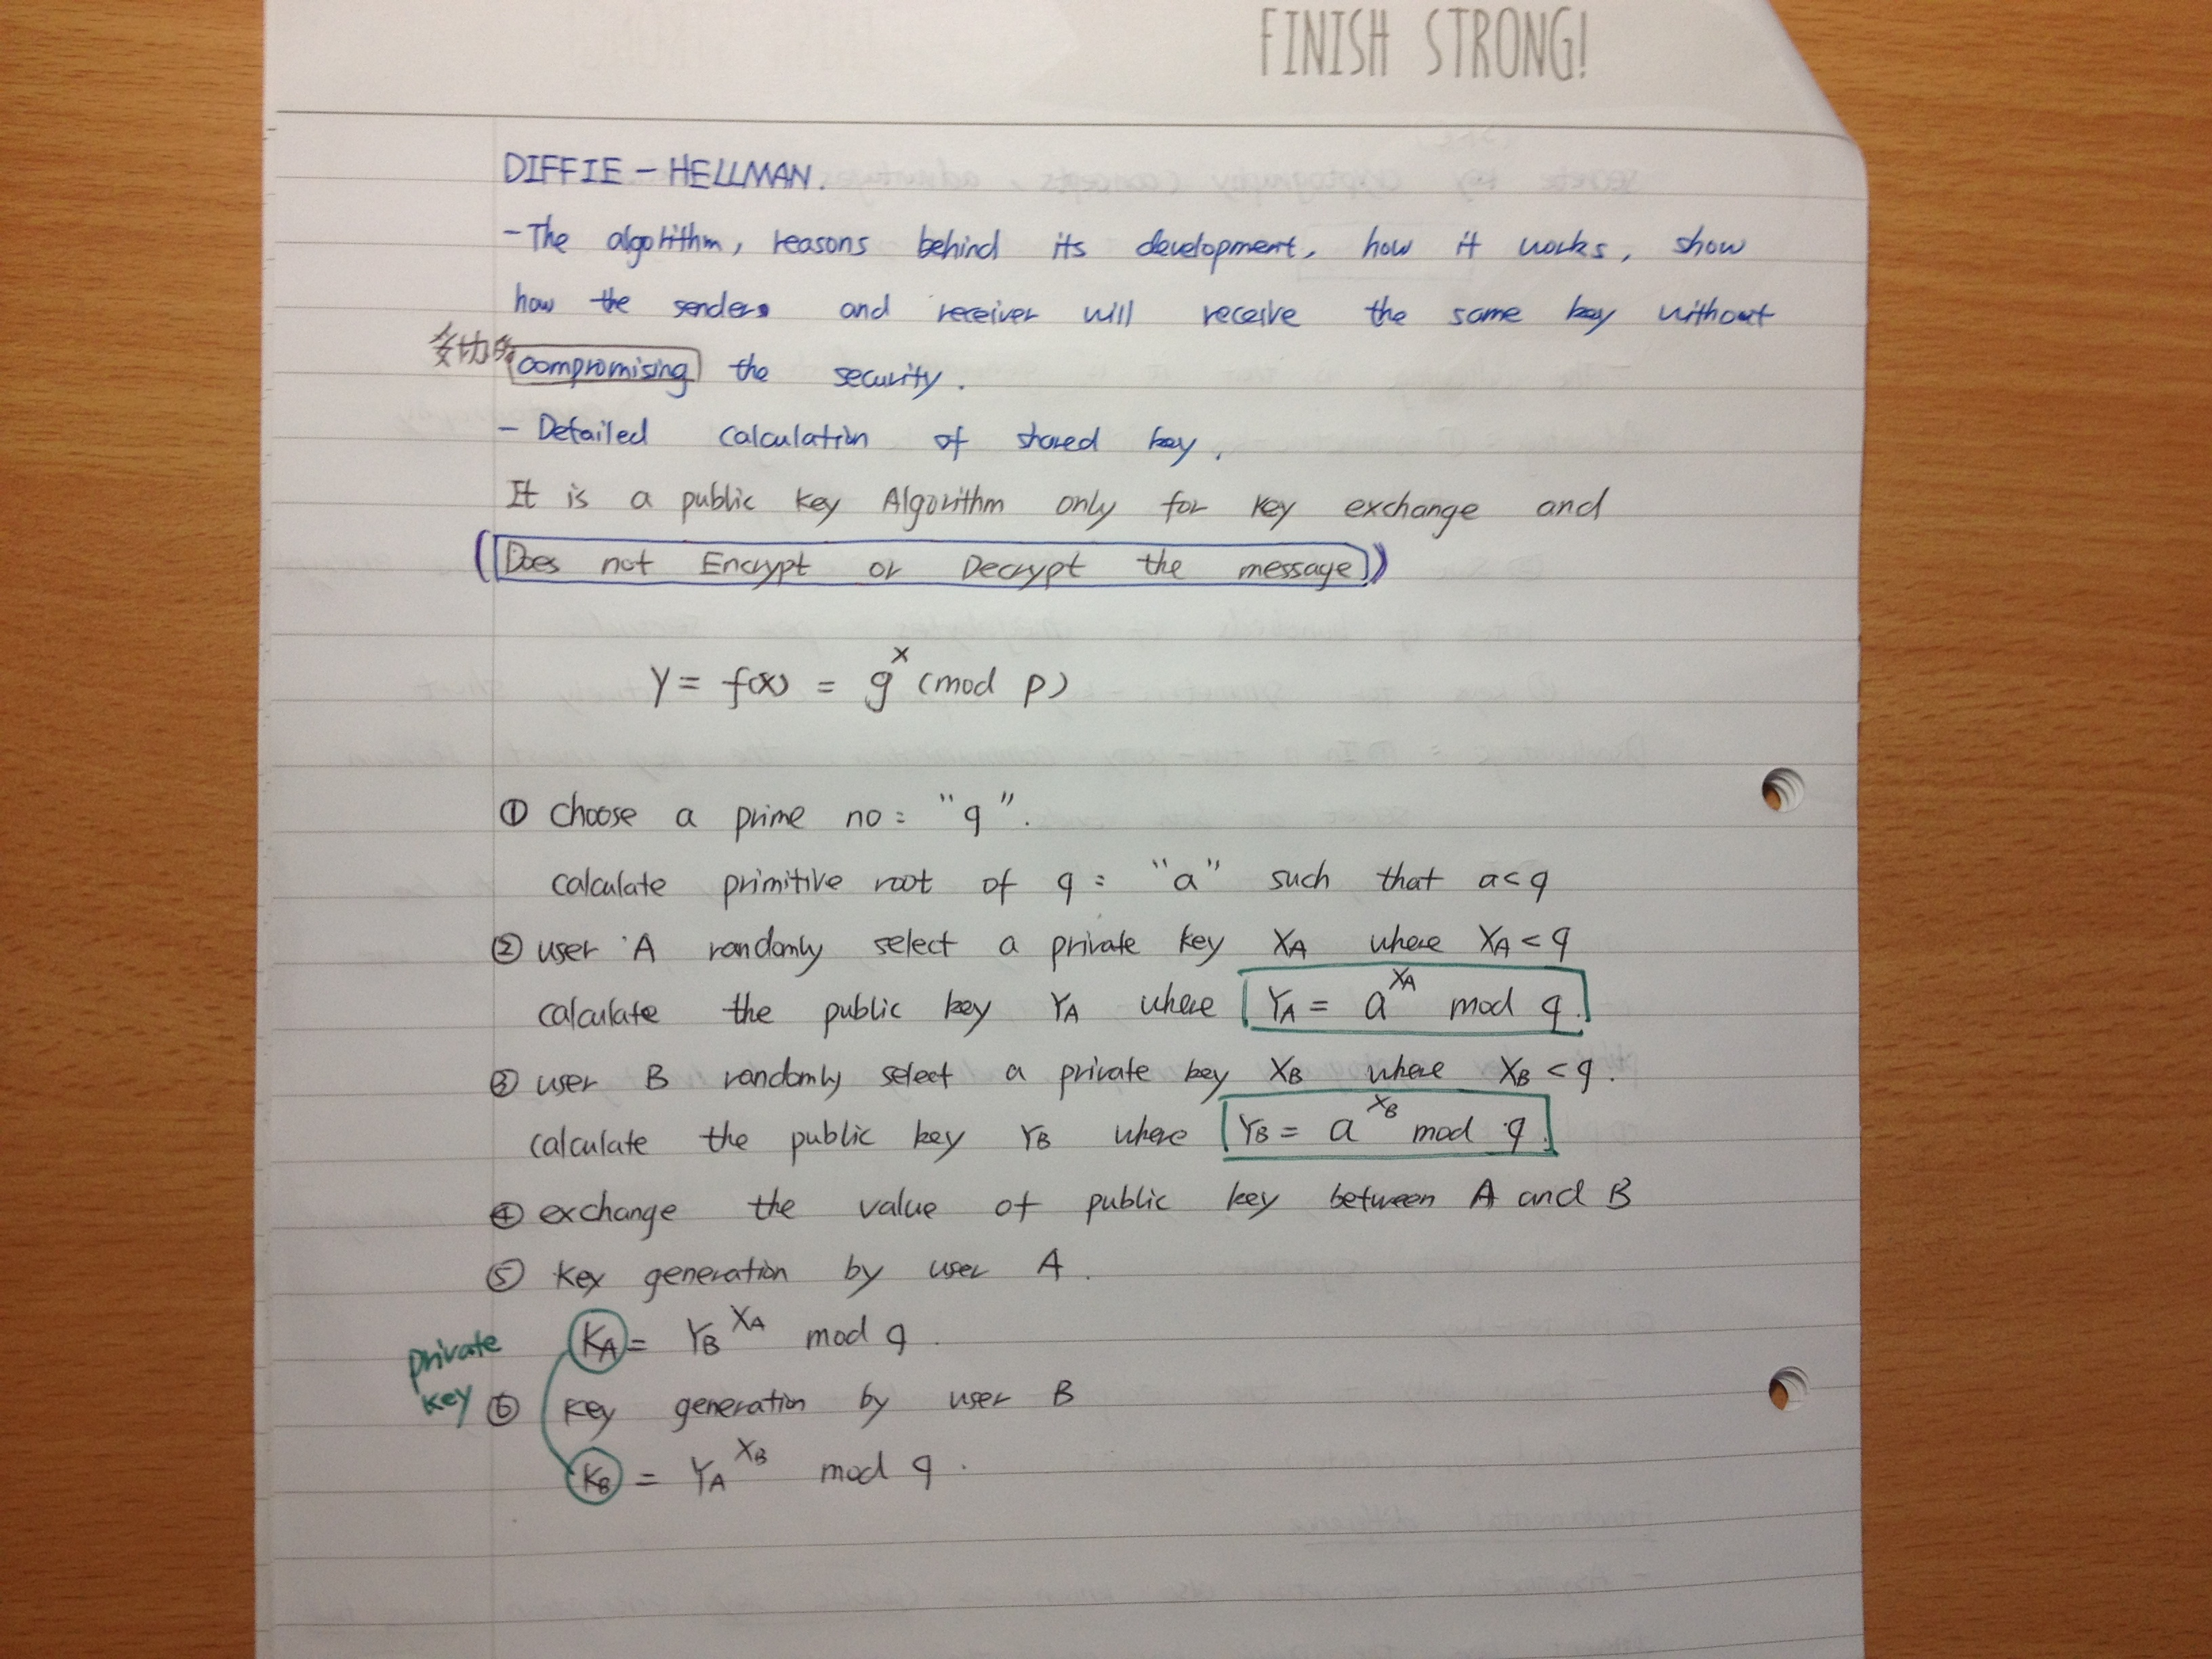 FINISH STRONG!
DIFFIE - HELLMAN.
- The algorithm, reasons behind its development, how it works, show
how the senders and receiver will receive the same key without
compromising the security.
- Detailed calculation of shared key.
It is a public key Algorithm only for key exchange and
(Does not Encrypt or Decrypt the message)
y = f(x) = g^x (mod p)
① choose a prime no: "q".
calculate primitive root of q: "a" such that a<q
② user A randomly select a private key XA where XA < q
calculate the public key YA where YA = a^XA mod q.
③ user B randomly select a private key XB where XB < q.
calculate the public key YB where YB = a^XB mod q.
④ exchange the value of public key between A and B
⑤ key generation by user A.
KA = YB^XA mod q.
private
key
⑥ key generation by user B
KB = YA^XB mod q.